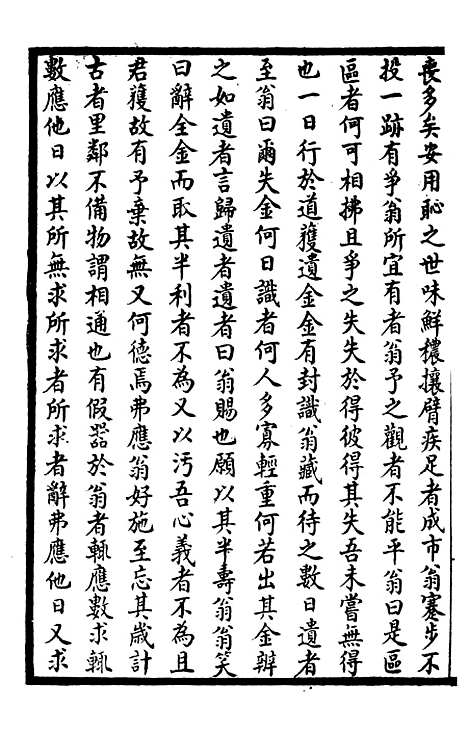 喪多矣安用恥之世味鮮穠攘臂疾足者成市翁蹇步不
投一跡有爭翁所宜有者翁予之觀者不能平翁曰是區
區者何可相拂且爭之失失於得彼得其失吾未嘗無得
也一日行於道獲遺金金有封識翁藏而待之數日遺者
至翁曰爾失金何日識者何人多寡輕重何若出其金辨
之如遺者言歸遺者遺者曰翁賜也願以其半壽翁翁笑
曰辭全金而取其半利者不為又以污吾心義者不為且
君獲故有予棄故無又何德焉弗應翁好施至忘其歲計
古者里鄰不備物謂相通也有假器於翁者輒應數求輒
數應他日以其所無求所求者所求者辭弗應他日又求